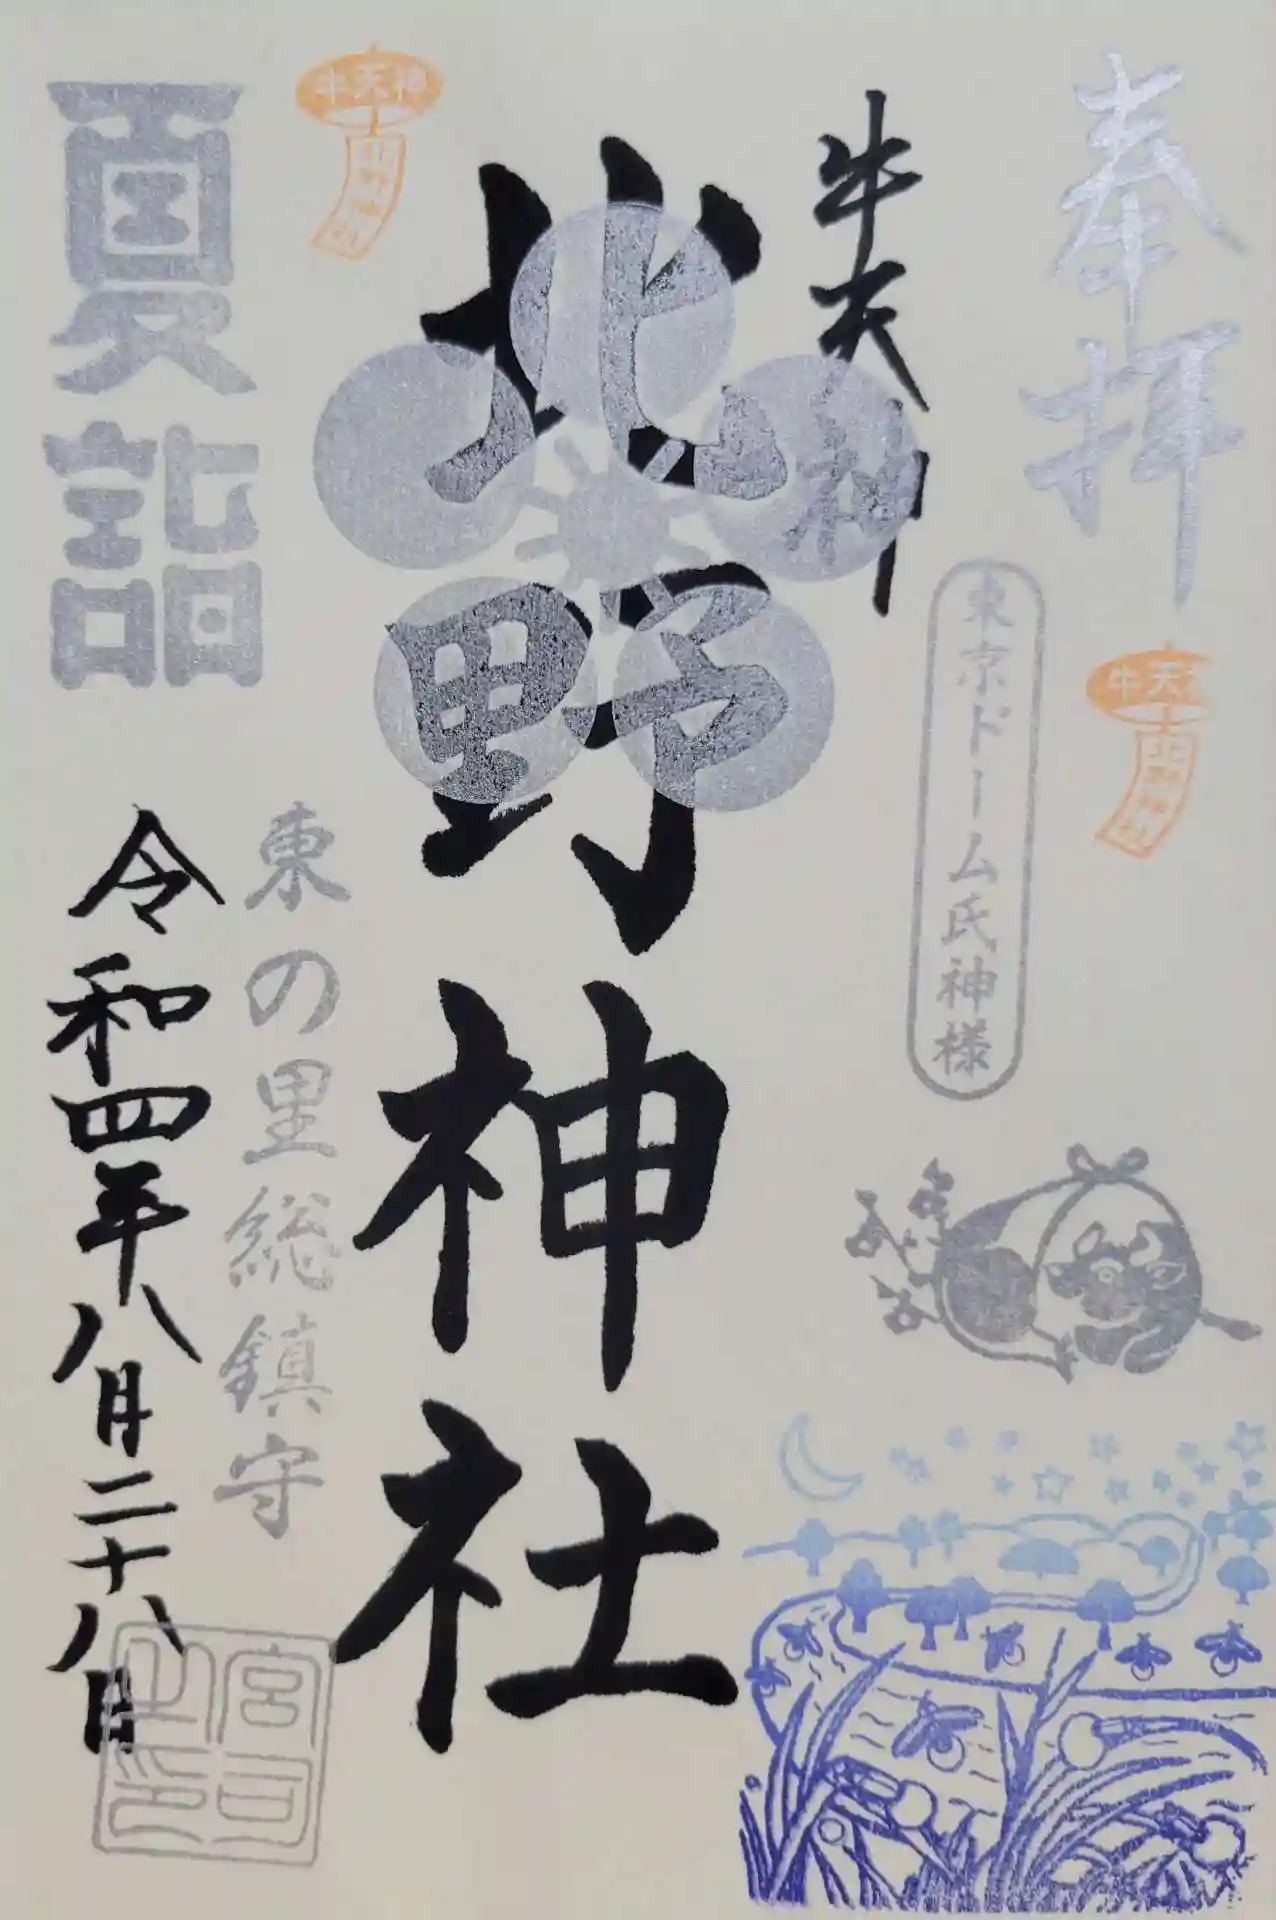 奉拝
牛天神
東京ドーム氏神様
牛天神
北野神社
牛天神
北野神社
東の里総鎮守
夏詣
令和四年八月二十八日
宮司之印